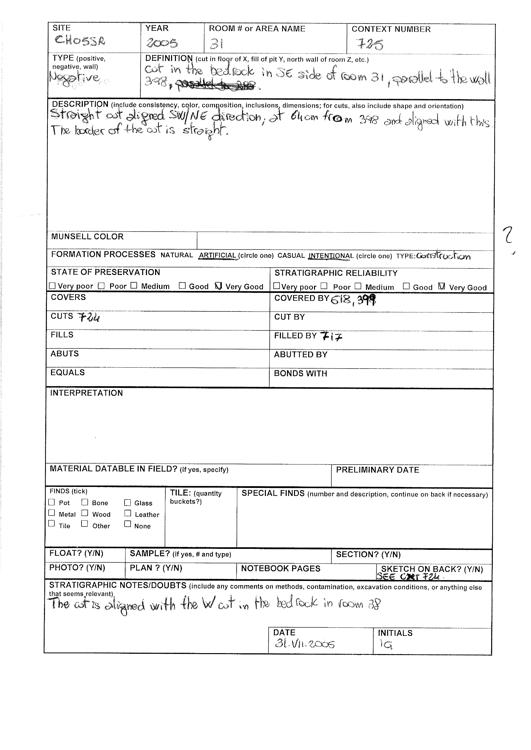 SITE YEAR ROOM # or AREA NAME CONTEXT NUMBER
CH05SR 2005 31 725
TYPE (positive, negative, wall) DEFINITION (cut in floor of X, fill of pit Y, north wall of room Z, etc.)
Negative cut in the bedrock in SE side of room 31, parallel to the wall
398,
DESCRIPTION (include consistency, color, composition, inclusions, dimensions; for cuts, also include shape and orientation)
Straight cut aligned SW/NE direction, at 64cm from 398 and aligned with this
The border of the cut is straight.
MUNSELL COLOR
?
FORMATION PROCESSES NATURAL ARTIFICIAL (circle one) CASUAL INTENTIONAL (circle one) TYPE: Construction
STATE OF PRESERVATION STRATIGRAPHIC RELIABILITY
Very poor Poor Medium Good Very Good Very poor Poor Medium Good Very Good
COVERS COVERED BY 618, 399
CUTS 724 CUT BY
FILLS FILLED BY 717
ABUTS ABUTTED BY
EQUALS BONDS WITH
INTERPRETATION
MATERIAL DATABLE IN FIELD? (if yes, specify) PRELIMINARY DATE
FINDS (tick) TILE: (quantity buckets?) SPECIAL FINDS (number and description, continue on back if necessary)
Pot Bone Glass
Metal Wood Leather
Tile Other None
FLOAT? (Y/N) SAMPLE? (if yes, # and type) SECTION? (Y/N)
PHOTO? (Y/N) PLAN ? (Y/N) NOTEBOOK PAGES SKETCH ON BACK? (Y/N)
SEE CXT 724
STRATIGRAPHIC NOTES/DOUBTS (include any comments on methods, contamination, excavation conditions, or anything else
that seems relevant)
The cut is aligned with the W cut in the bedrock in room 38
DATE INITIALS
31.VII.2005 IG